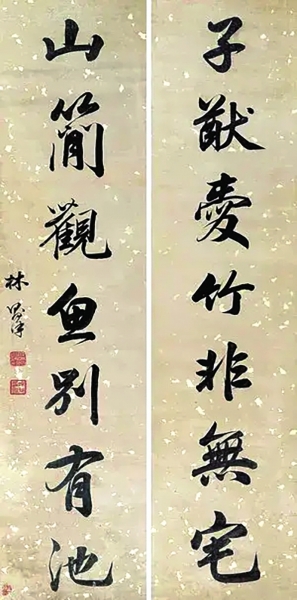 子猷愛竹非無宅
山簡觀魚別有池
林